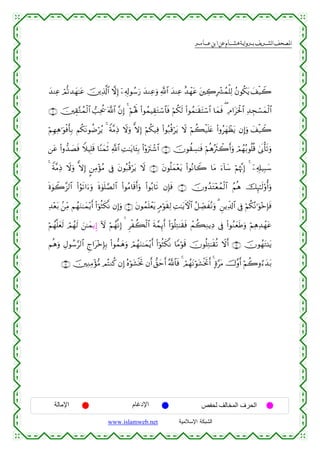 المصحف الشريف برواية هشام عن ابن عامر
كَيْفَ يَكُونُ لِلْمُشْرِكِينَ عَهْدٌ عِندَ ٱللَّهِ وَعِندَ رَسُولِهِۦٓ إِلَّا ٱلَّذِينَ عَٰهَدتُّمْ عِندَ
ٱلْمَسْجِدِ ٱلْحَرَامِ ۖ فَمَا ٱسْتَقَٰمُوا۟ لَكُمْ فَٱسْتَقِيمُوا۟ لَهُمْ ۚ إِنَّ ٱللَّهَ يُحِبُّ ٱلْمُتَّقِينَ ۝
كَيْفَ وَإِن يَظْهَرُوا۟ عَلَيْكُمْ لَا يَرْقُبُوا۟ فِيكُمْ إِلًّا وَلَا ذِمَّةً ۚ يُرْضُونَكُم بِأَفْوَٰهِهِمْ
وَتَأْبَىٰ قُلُوبُهُمْ وَأَكْثَرُهُمْ فَٰسِقُونَ ۝ ٱشْتَرَوْا۟ بِـَٔايَٰتِ ٱللَّهِ ثَمَنًا قَلِيلًا فَصَدُّوا۟ عَن
سَبِيلِهِۦٓ ۚ إِنَّهُمْ سَآءَ مَا كَانُوا۟ يَعْمَلُونَ ۝ لَا يَرْقُبُونَ فِى مُؤْمِنٍ إِلًّا وَلَا ذِمَّةً ۚ
وَأُو۟لَٰٓئِكَ هُمُ ٱلْمُعْتَدُونَ ۝ فَإِن تَابُوا۟ وَأَقَامُوا۟ ٱلصَّلَوٰةَ وَءَاتَوُا۟ ٱلزَّكَوٰةَ
فَإِخْوَٰنُكُمْ فِى ٱلدِّينِ ۗ وَنُفَصِّلُ ٱلْءَايَٰتِ لِقَوْمٍ يَعْلَمُونَ ۝ وَإِن نَّكَثُوٓا۟ أَيْمَٰنَهُم مِّنۢ بَعْدِ
عَهْدِهِمْ وَطَعَنُوا۟ فِى دِينِكُمْ فَقَٰتِلُوٓا۟ أَئِمَّةَ ٱلْكُفْرِ ۙ إِنَّهُمْ لَآ إِيمَٰنَ لَهُمْ لَعَلَّهُمْ
يَنتَهُونَ ۝ أَلَا تُقَٰتِلُونَ قَوْمًا نَّكَثُوٓا۟ أَيْمَٰنَهُمْ وَهَمُّوا۟ بِإِخْرَاجِ ٱلرَّسُولِ وَهُم
بَدَءُوكُمْ أَوَّلَ مَرَّةٍ ۚ أَتَخْشَوْنَهُمْ ۚ فَٱللَّهُ أَحَقُّ أَن تَخْشَوْهُ إِن كُنتُم مُّؤْمِنِينَ ۝
الحرف المخالف لحفص الإدغام الإمالة
الشبكة الإسلامية www.islamweb.net